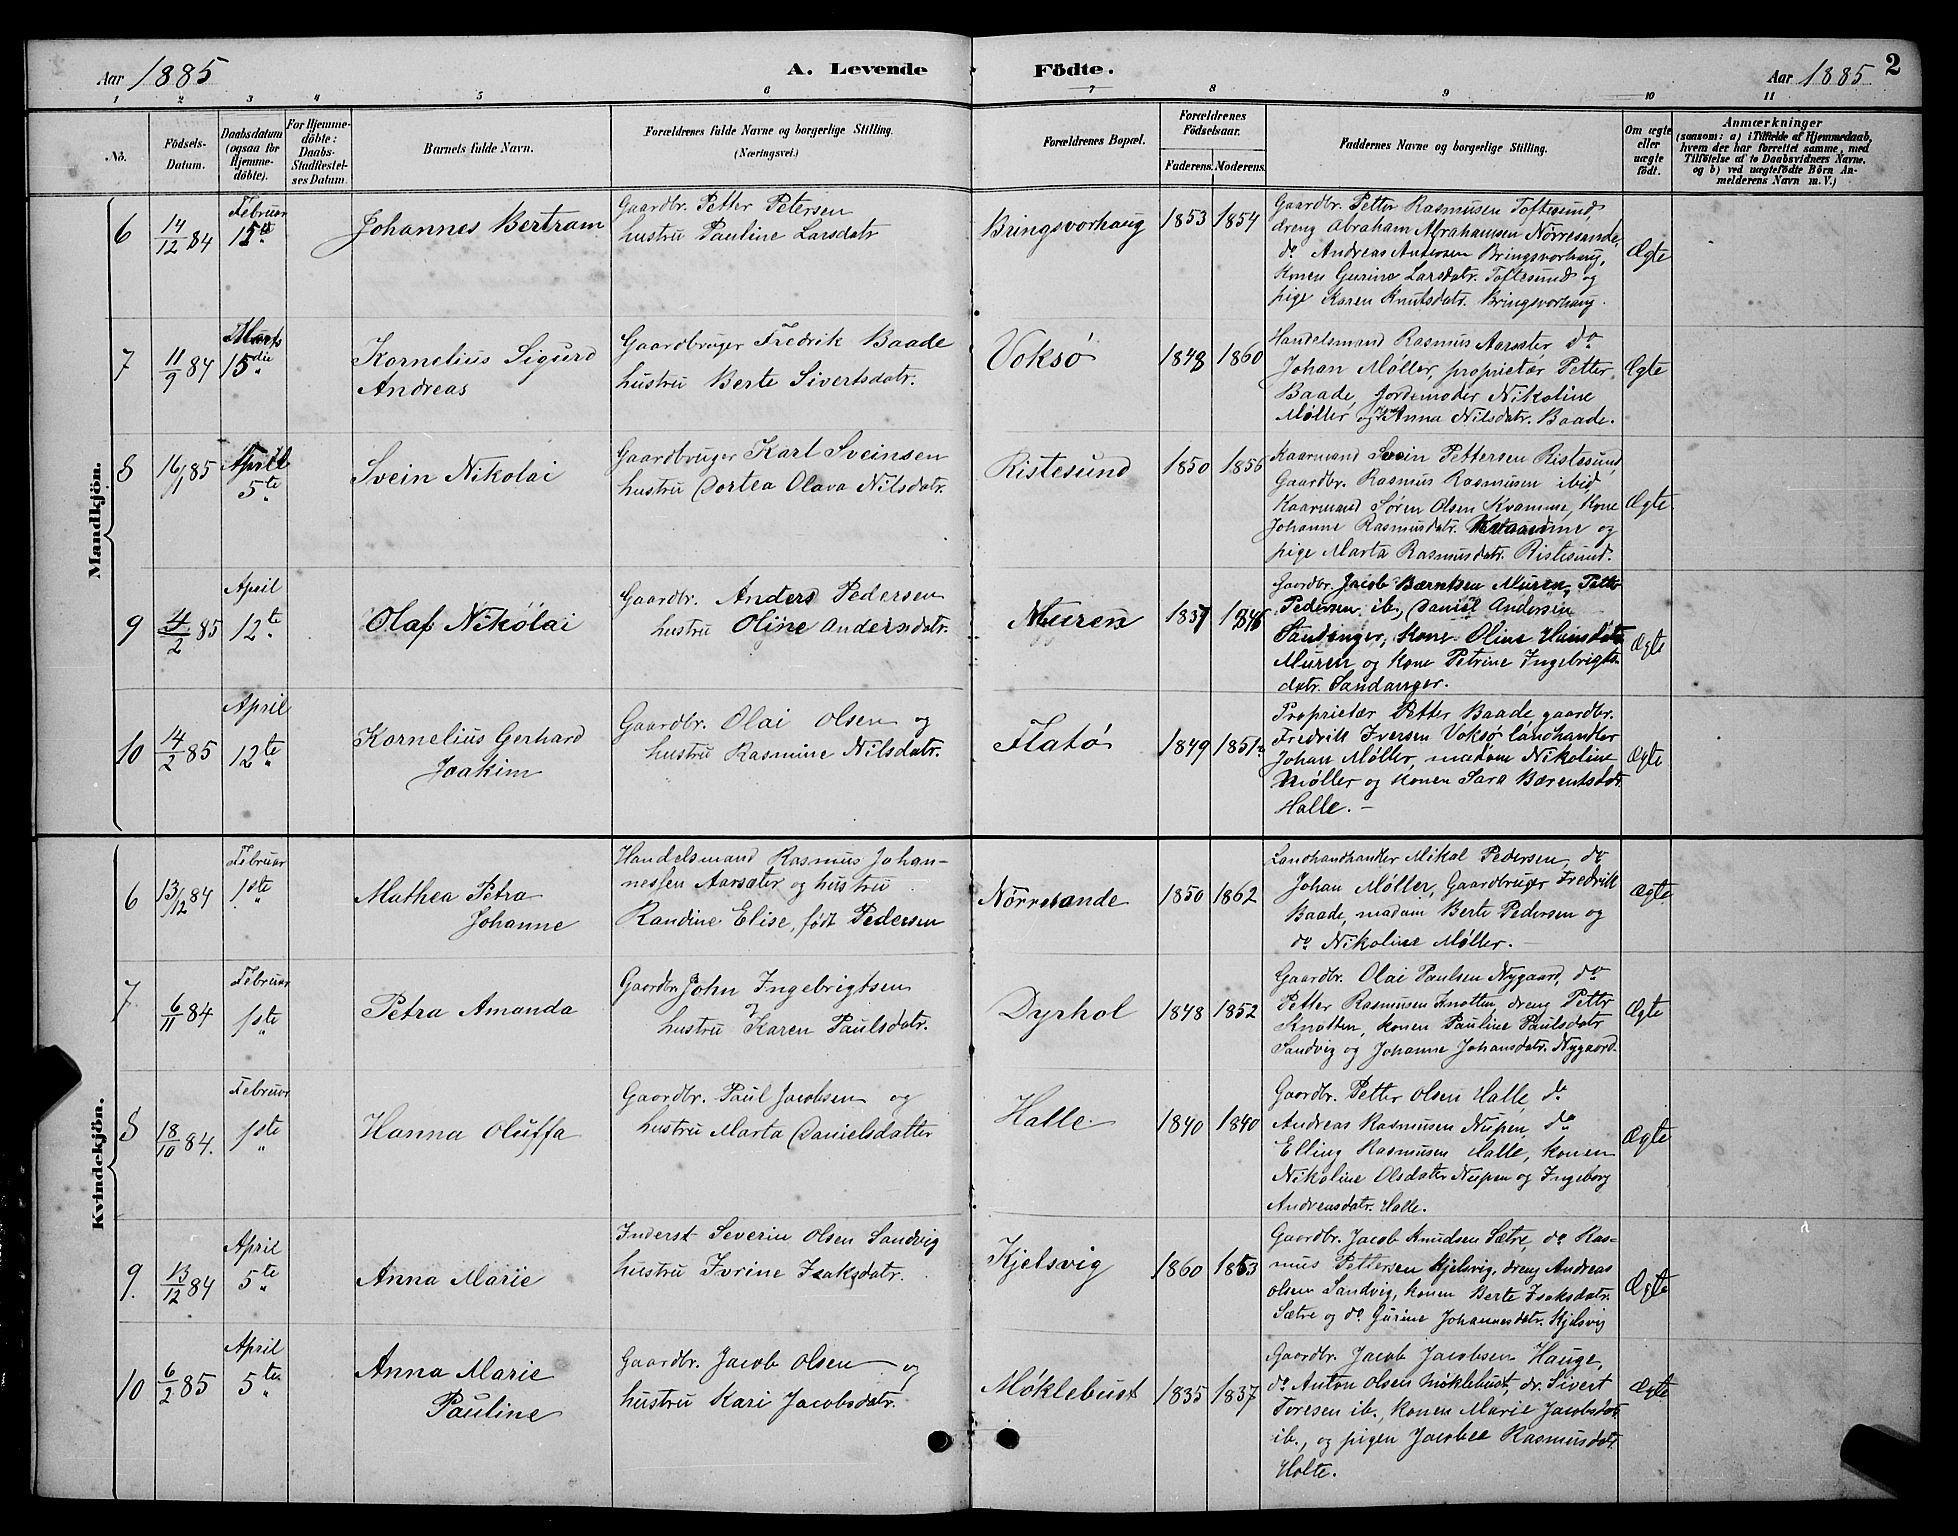 Aar 1885
A. Levende
Födte.
Aar 1885
2
1 2 3 4 5 6 7 8 9 10 11
No.
Födsels-
Datum.
Daabsdatum
(ogsaa for
Hjemme-
döbte).
For Hjemme-
döbte:
Daabs-
Stadfæstel-
ses Datum.
Barnets fulde Navn.
Forældrenes fulde Navne og borgerlige Stilling.
(Næringsvei.)
Forældrenes Bopæl.
Forældrenes
Födselsaar.
Faderens. Moderens.
Faddernes Navne og borgerlige Stilling.
Om ægte
eller
uægte
födt.
Anmærkninger
(saasom: a) i Tilfælde af Hjemmedaab,
hvem der har forrettet samme, med
Tilföielse af to Daabsvidners Navne,
og b) ved uægtefödte Börn An-
melderens Navn m. V.)
Mandkjön.
6
14/12 84
Februar
15de
Johannes Bertram
Gaardbr. Petter Petersen
hustru Pauline Larsdatr
Bringsvorhaug
1853
1854
Gaardbr. Petter Rasmusen Toftesund,
dreng Abraham Abrahamsen Nörresande,
do Andreas Andersen Bringsvorhaug,
Konen Gurine Larsdatr. Toftesund og
pige Karen Knutsdatr. Bringsvorhaug.
Ægte
7
11/9 84
Marts
15die
Kornelius Sigurd
Andreas
Gaardbruger Fredrik Baade
hustru Berte Sivertsdatr.
Voksø
1848
1860
Handelsmand Rasmus Aarsæter do
Johan Møller, proprietær Petter
Baade, Jordemoder Nikoline
Møller og Anna Nilsdatr. Baade.
Ægte
8
16/1 85
April
5te
Svein Nikolai
Gaardbruger Karl Sveinsen
hustru Dortea Olava Nilsdatr.
Ristesund
1850
1856
Kaarmand Svein Pettersen Ristesund,
Gaardbr. Rasmus Rasmusen ibid,
Kaarmand Søren Olsen Kvamme, Kone
Johanne Rasmusdatr. Kvamme og
pige Marta Rasmusdatr. Ristesund.
Ægte
9
4/2 85
April
12te
Olaf Nikolai
Gaardbr. Anders Pedersen
hustru Oline Andersdatr.
Muren
1837
Gaardbr. Jacob Bærntsen Muren, Petter
Pedersen ib., Daniel Andersen
Sandanger, Kone Oline Hansdatr
Muren og Kone Petrine Ingebrigts-
datr. Sandanger.
Ægte
10
14/2 85
April
12te
Kornelius Gerhard
Joakim
Gaardbr. Olai Olsen og
hustru Rasmine Nilsdatr.
Flatø
1849
1851
Proprietær Petter Baade, gaardbr.
Fredrik Iversen Voksø, landhandler
Johan Møller, madam Nikoline
Møller og Konen Sara Bærentsdatr
Halle. –
Ægte
Kvindekjön.
6
13/12 84
Februar
1ste
Mathea Petra
Johanne
Handelsmand Rasmus Johan-
nessen Aarsæter og hustru
Randine Elise, født Pedersen
Nörresande
1850
1862
Landhandhandler Mikal Pedersen, do
Johan Møller, Gaardbruger Fredrik
Baade, madam Berte Pedersen og
do Nikoline Møller. –
Ægte
7
6/11 84
Februar
1ste
Petra Amanda
Gaardbr. John Ingebrigtsen
og
hustru Karen Paulsdatr.
Dyrhol
1848
1852
Gaardbr. Olai Paulsen Nygaard, do
Petter Rasmusen Knotten, dreng Petter
Knotten, konen Pauline Paulsdatr
Sandvig og Johanne Johansdatr. Nygaard.
Ægte
8
18/10 84.
Februar
1ste
Hanna Oluffa
Gaardbr. Paul Jacobsen og
hustru Marta Danielsdatter
Halle
1840
1840
Gaardbr. Petter Olsen Halle, do
Andreas Rasmusen Nupen, do
Elling Rasmusen Halle, konen
Nikoline Olsdater Nupen og Ingeborg
Andreasdatr. Halle.
Ægte
9.
13/12 84
April
5te
Anna Marie
Inderst Severin Olsen Sandvig
hustru Ivrine Isaksdatr.
Kjelsvig
1860
1853
Gaardbr. Jacob Knudsen Sætre, do Ras-
mus Pettersen Kjelsvig, dreng Andreas
Olsen Sandvig, konen Berte Isaksdatr.
Sætre og do Gurine Johannesdatr. Kjelsvig
Ægte
10
6/2 85
April
5te
Anna Marie
Pauline
Gaardbr. Jacob Olsen og
hustru Kari Jacobsdatr.
Møklebust
1835
1837
Gaardbr. Jacob Jacobsen Hauge,
do Anton Olsen Møklebust, dr. Sivert
Toresen ib., konen Marie Jacobsdatr
ib., og pigen Jacobee Rasmusdatr
Holte.
Ægte